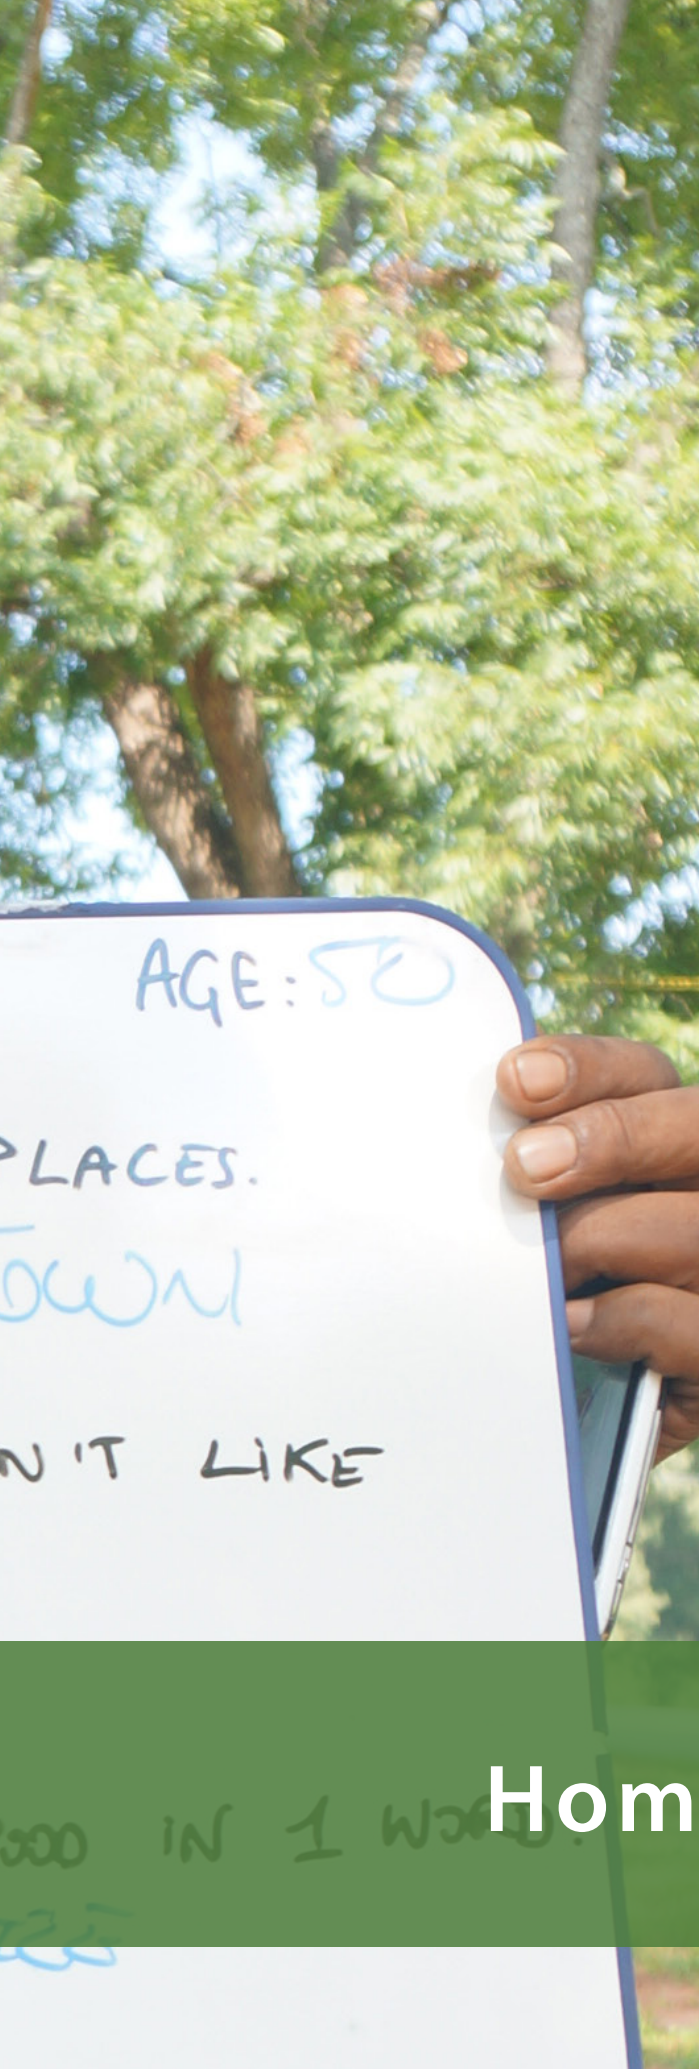 AGE: 50
PLACES.
TOWN
N'T LIKE
Hom
IN 1 WORD.
ESS